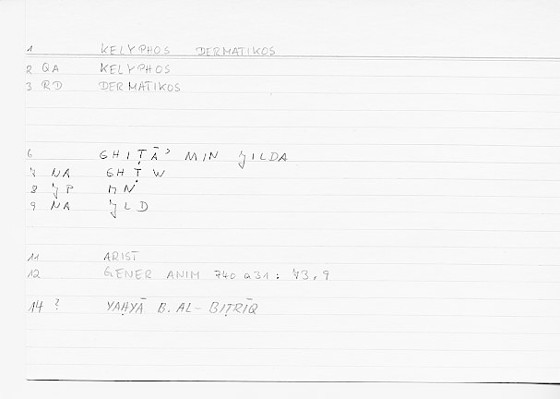 1 KELYPHOS DERMATIKOS
2 QA KELYPHOS
3 RD DERMATIKOS
6 GHIṬĀʾ MIN ǦILDA
7 NA GHṬW
8 ǦP MN
9 NA ǦLD
11 ARIST
12 GENER ANIM 740 a31: 73,9
14 ? YAḤYĀ B. AL-BIṬRĪQ